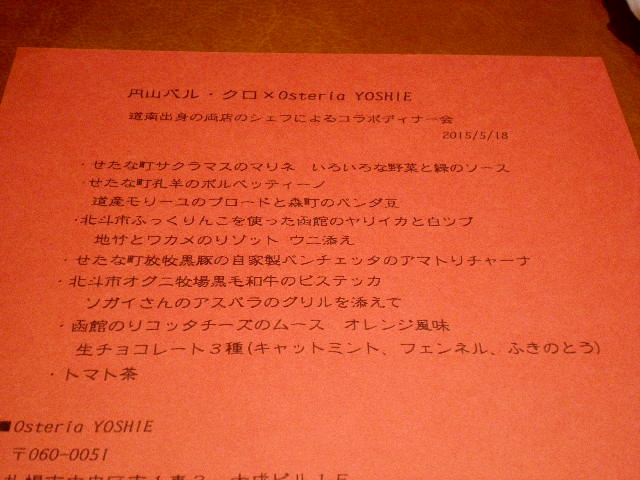 円山バル・クロ×Osteria YOSHIE
道南出身の両店のシェフによるコラボディナー会
2015/5/18
・せたな町サクラマスのマリネ　いろいろな野菜と緑のソース
・せたな町乳羊のポルペッティーノ
道産モリーユのブロードと森町のパンダ豆
・北斗市ふっくりんこを使った函館のヤリイカと白ツブ
地竹とワカメのリゾット ウニ添え
・せたな町放牧黒豚の自家製パンチェッタのアマトリチャーナ
・北斗市オグニ牧場黒毛和牛のビステッカ
ソガイさんのアスパラのグリルを添えて
・函館のリコッタチーズのムース　オレンジ風味
生チョコレート3種(キャットミント、フェンネル、ふきのとう)
・トマト茶
■Osteria YOSHIE
〒060-0051
札幌市中央区南1東2 大成ビル1F